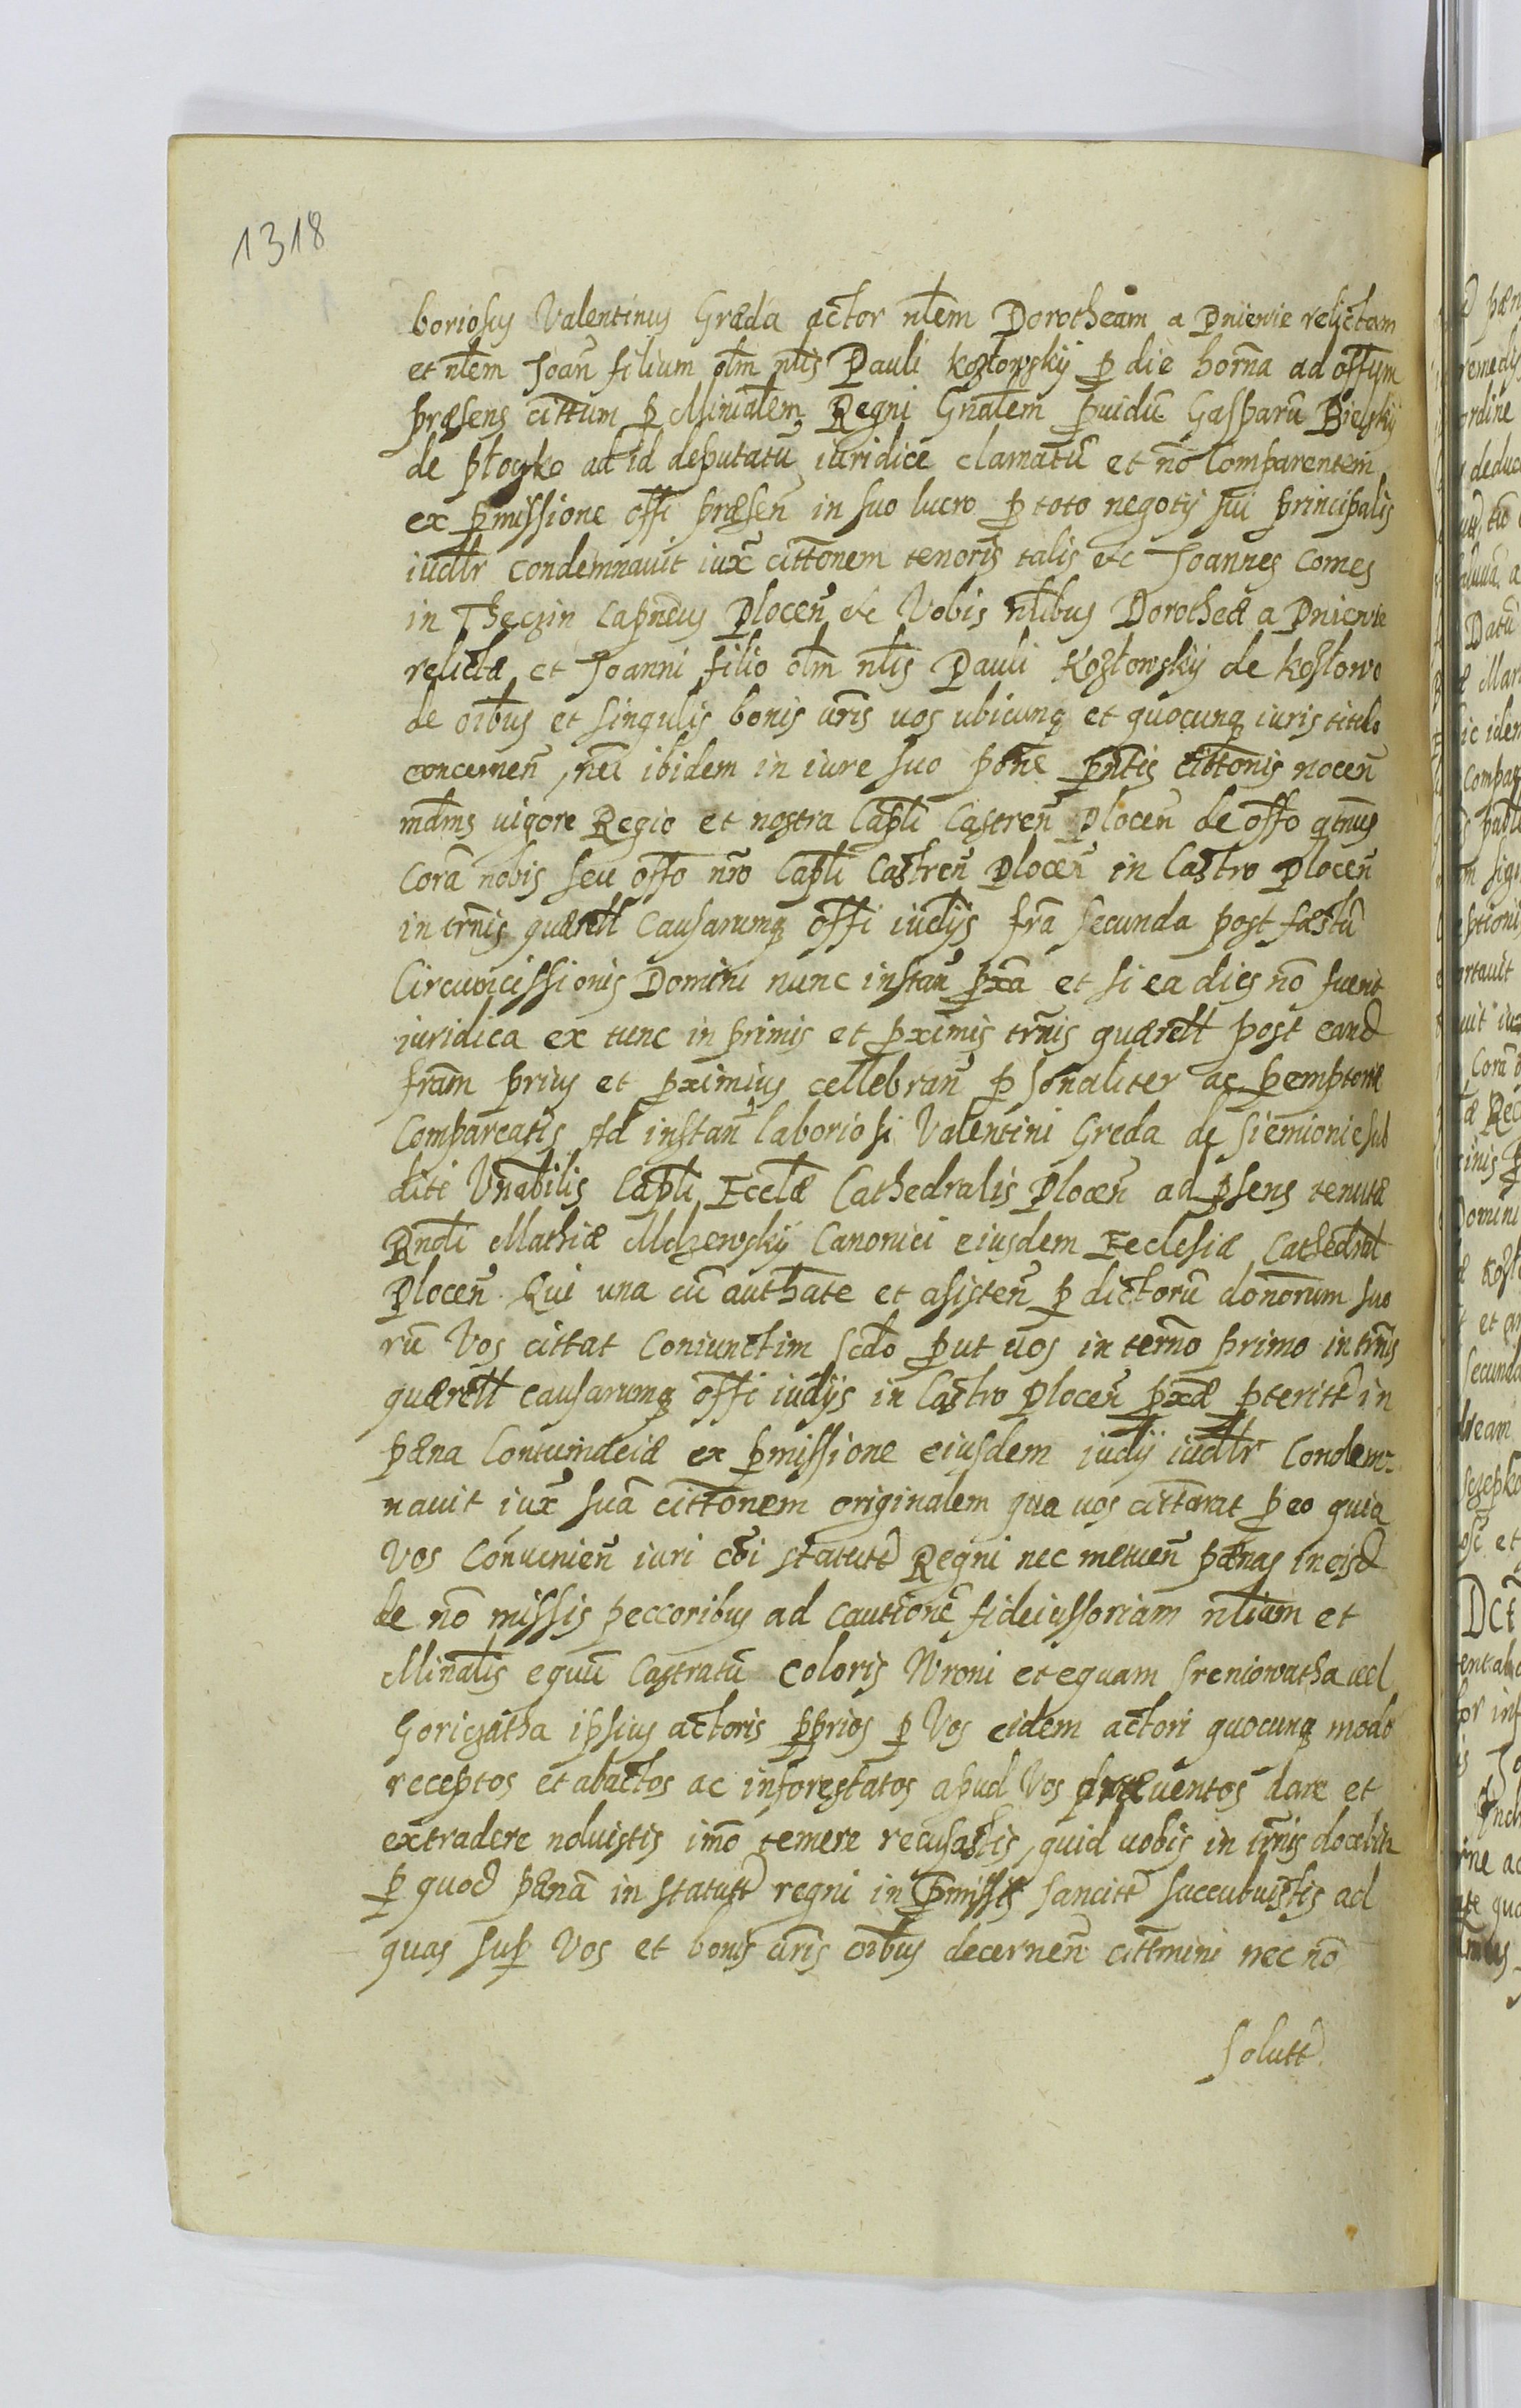 1318
boriosus Valentinus Græda actor nlem Dorotheam a Dnienie relictam
et nlem Joan̄ filium olm nlis Pauli Kozlowskÿ p die horña ad offum
præsens cittum p Minialem Regni Gnalem puidū Gasparū Bielskÿ
de plocyko ad id deputatū iuridice clamatū et nō Comparentem
ex pmissione offi præsen̄ in suo lucro p toto negotÿ sui principalis
iudlr condemnauit iux̄ cittonem tenoris talis etc Joannes Comes
in Theczin Capneus Plocen̄ etc Vobis nlibus Dorotheæ a Dnienie
relictæ et Joanni filio olm nlis Pauli Kozlowskÿ de Kozlowo
de oibus et singulis bonis uris uos ubicunq et quocunq iuris titulo
concernen̄, nec ibidem in iure suo pone pntis cittonis nocen̄
mdms uigore Regio et nostra Capli Castren̄ Plocen̄ de offo qtnus
Corā nobis seu offo nro Capli Castren̄ Plocen̄ in Castro Plocen̄
in trnis quærell causarumq offi iudÿs fra secunda post fæstū
Circumcissionis Domini nunc instan̄ pxā et si ea dies nō fuerit
iuridica ex tunc in primis et pximis trnis quærell post eand
fram prius et pximius cellebran̄ psonaliter ac pemptorie
Compareatis Ad instan̄ laboriosi Valentini Greda de Siemionie sub
diti Vnabilis Capli Ecclæ Cathedralis Plocen̄ ad psens tenutæ
Rndi Mathiæ Mdzewskÿ Canonici eiusdem Ecclesiæ Cathedral
Plocen̄ Qui una cū authate et asisten̄ pdictorū donorum suo
rū Vos cittat Coniunctim scdo put uos in termo primo in trnis
quærell causarumq offi iudÿs in Castro Plocen̄ pxæ pteritt in
pæna Contumaciæ ex pmissione eiusdem iudÿ iudlr Condem-
nauit iux̄ suā cittonem originalem qua uos cittarat peo quia
Vos Conuenien̄ iuri coi statutt Regni nec metuen̄ pænas in eisd
de nō missis peccoribus ad cautionē fideiussoriam nlium et
Minalis equū Castratū coloris Wroni et equam sreniowatha uel
Gorizatha ipsius actoris pprios p Vos eidem actori quocunq modo
receptos et abactos ac inforestatos apud Vos præuentos dare et
extradere noluistis imo temere recusastis, quid uobis in trnis docebit
p quod pænā in statutt regni in pmissis sancitt succubuistis ad
quas sup Vos et bonis uris oibus decernen̄ cittmini nec nō
Solutt